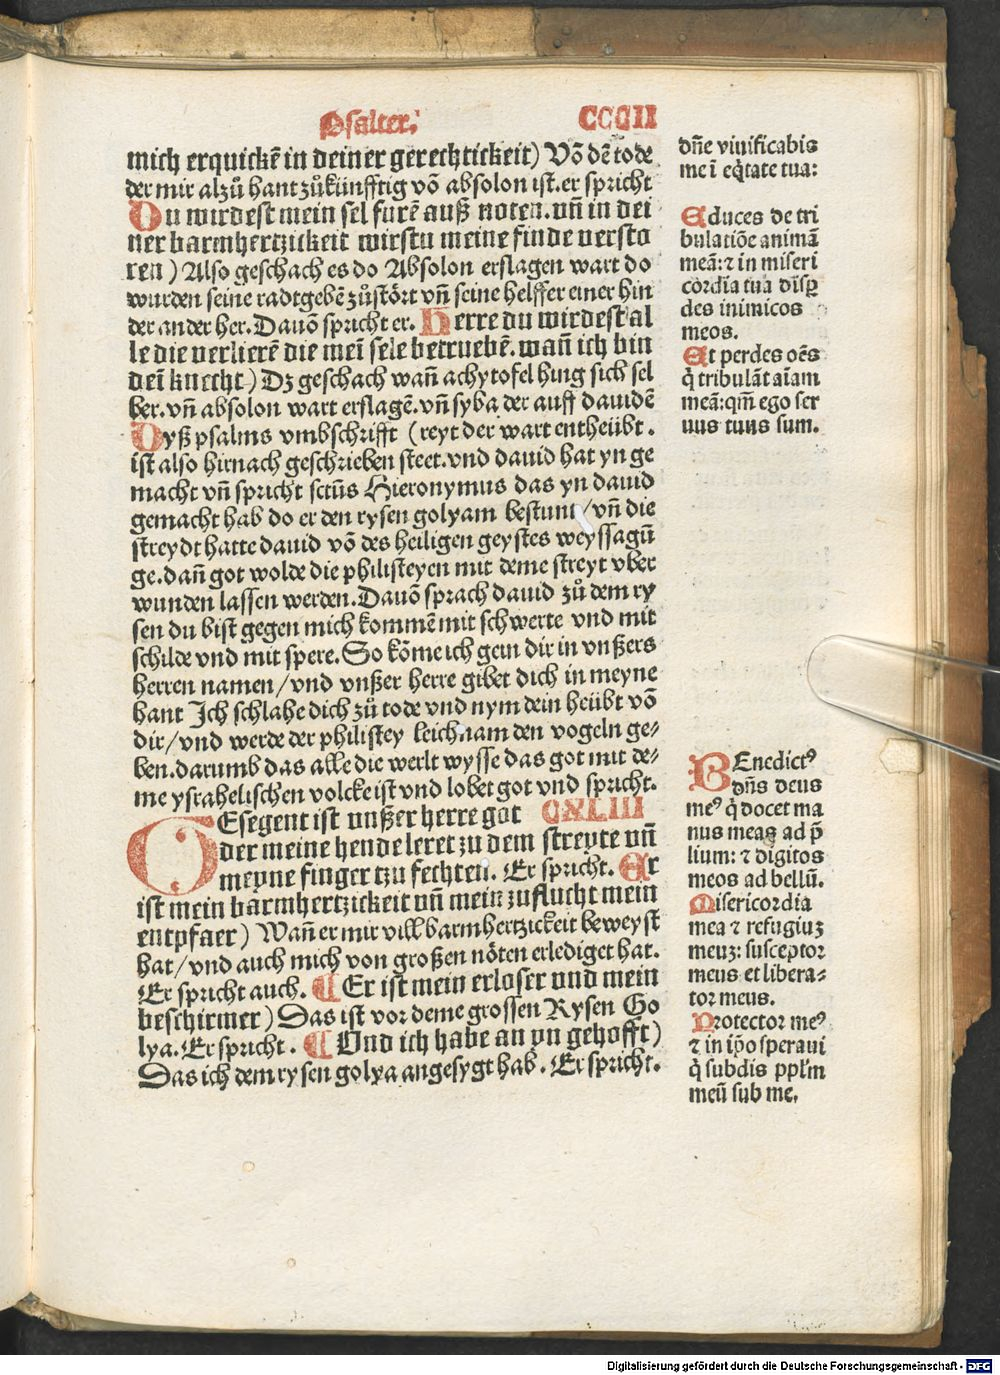 Psalter.
CCCII
mich erquickē in deiner gerechtickeit) Vō dē tode
der mir alzů hant zůkünfftig vō absolon ist. er spricht
Du wirdest mein sel furē auß noten. vñ in dei
ner barmhertzickeit wirstu meine finde versto
ren) Also geschach es do Absolon erslagen wart do
wurden seine radtgebē zůstört vñ seine helffer einer hin
der ander her. Dauō spricht er. Herre du wirdest al
le die verlierē die mei sele betruebē. wañ ich bin
dei knecht) Dz geschach wañ achytofel hing sich sel
ber. vñ absolon wart erslagē. vñ syba der auff dauidē
Dyß psalms vmbschrifft (reyt der wart entheübt.
ist also hirnach geschrieben steet. vnd dauid hat yn ge
macht vñ spricht sctūs Hieronymus das yn dauid
gemacht hab do er den rysen golyam bestunt/vñ die
streydt hatte dauid vō des heiligen geystes weyssagū
ge. dañ got wolde die philisteyen mit deme streyt vber
wunden lassen werden. Dauō sprach dauid zů dem ry
sen du bist gegen mich kommē mit schwerte vnd mit
schilde vnd mit spere. So kōme ich gein dir in vnßers
herren namen/vnd vnßer herre gibet dich in meyne
hant Ich schlahe dich zů tode vnd nym dein heübt vō
dir/vnd werde der philistey leichnam den vogeln ge-
ben. darumb das alle die werlt wysse das got mit de-
me ysrahelischen volcke ist vnd lobet got vnd spricht.
GEsegent ist vnßer herre got CXLIII
der meine hende leret zu dem streyte vñ
meyne finger tzu fechten. Er spricht. Er
ist mein barmhertzickeit vñ mein zuflucht mein
entpfaer) Wañ er mir vill barmhertzickeit beweyst
hat/vnd auch mich von großen nöten erlediget hat.
Er spricht auch. ¶ Er ist mein erloser vnd mein
beschirmer) Das ist vor deme grossen Rysen Go
lya. Er spricht. ¶ Vnd ich habe an yn gehofft)
Das ich dem rysen golya angesygt hab. Er spricht.
dñe viuificabis
me ī eq̄tate tua:
Educes de tri
bulatiōe animā
meā: ⁊ in miseri
cordia tua disꝑ
des inimicos
meos.
Et perdes oēs
q̄ tribulāt aīam
meā: qm̄ ego ser
uus tuus sum.
BEnedictꝰ
dñs deus
meꝰ q̄ docet ma
nus meas ad p̄
lium: ⁊ digitos
meos ad bellū.
Misericordia
mea ⁊ refugiuꝫ
meuꝫ: susceptor
meus et libera-
tor meus.
Protector meꝰ
⁊ in ip̄o speraui
q̄ subdis ppl'm
meū sub me.
Digitalisierung gefördert durch die Deutsche Forschungsgemeinschaft - DFG